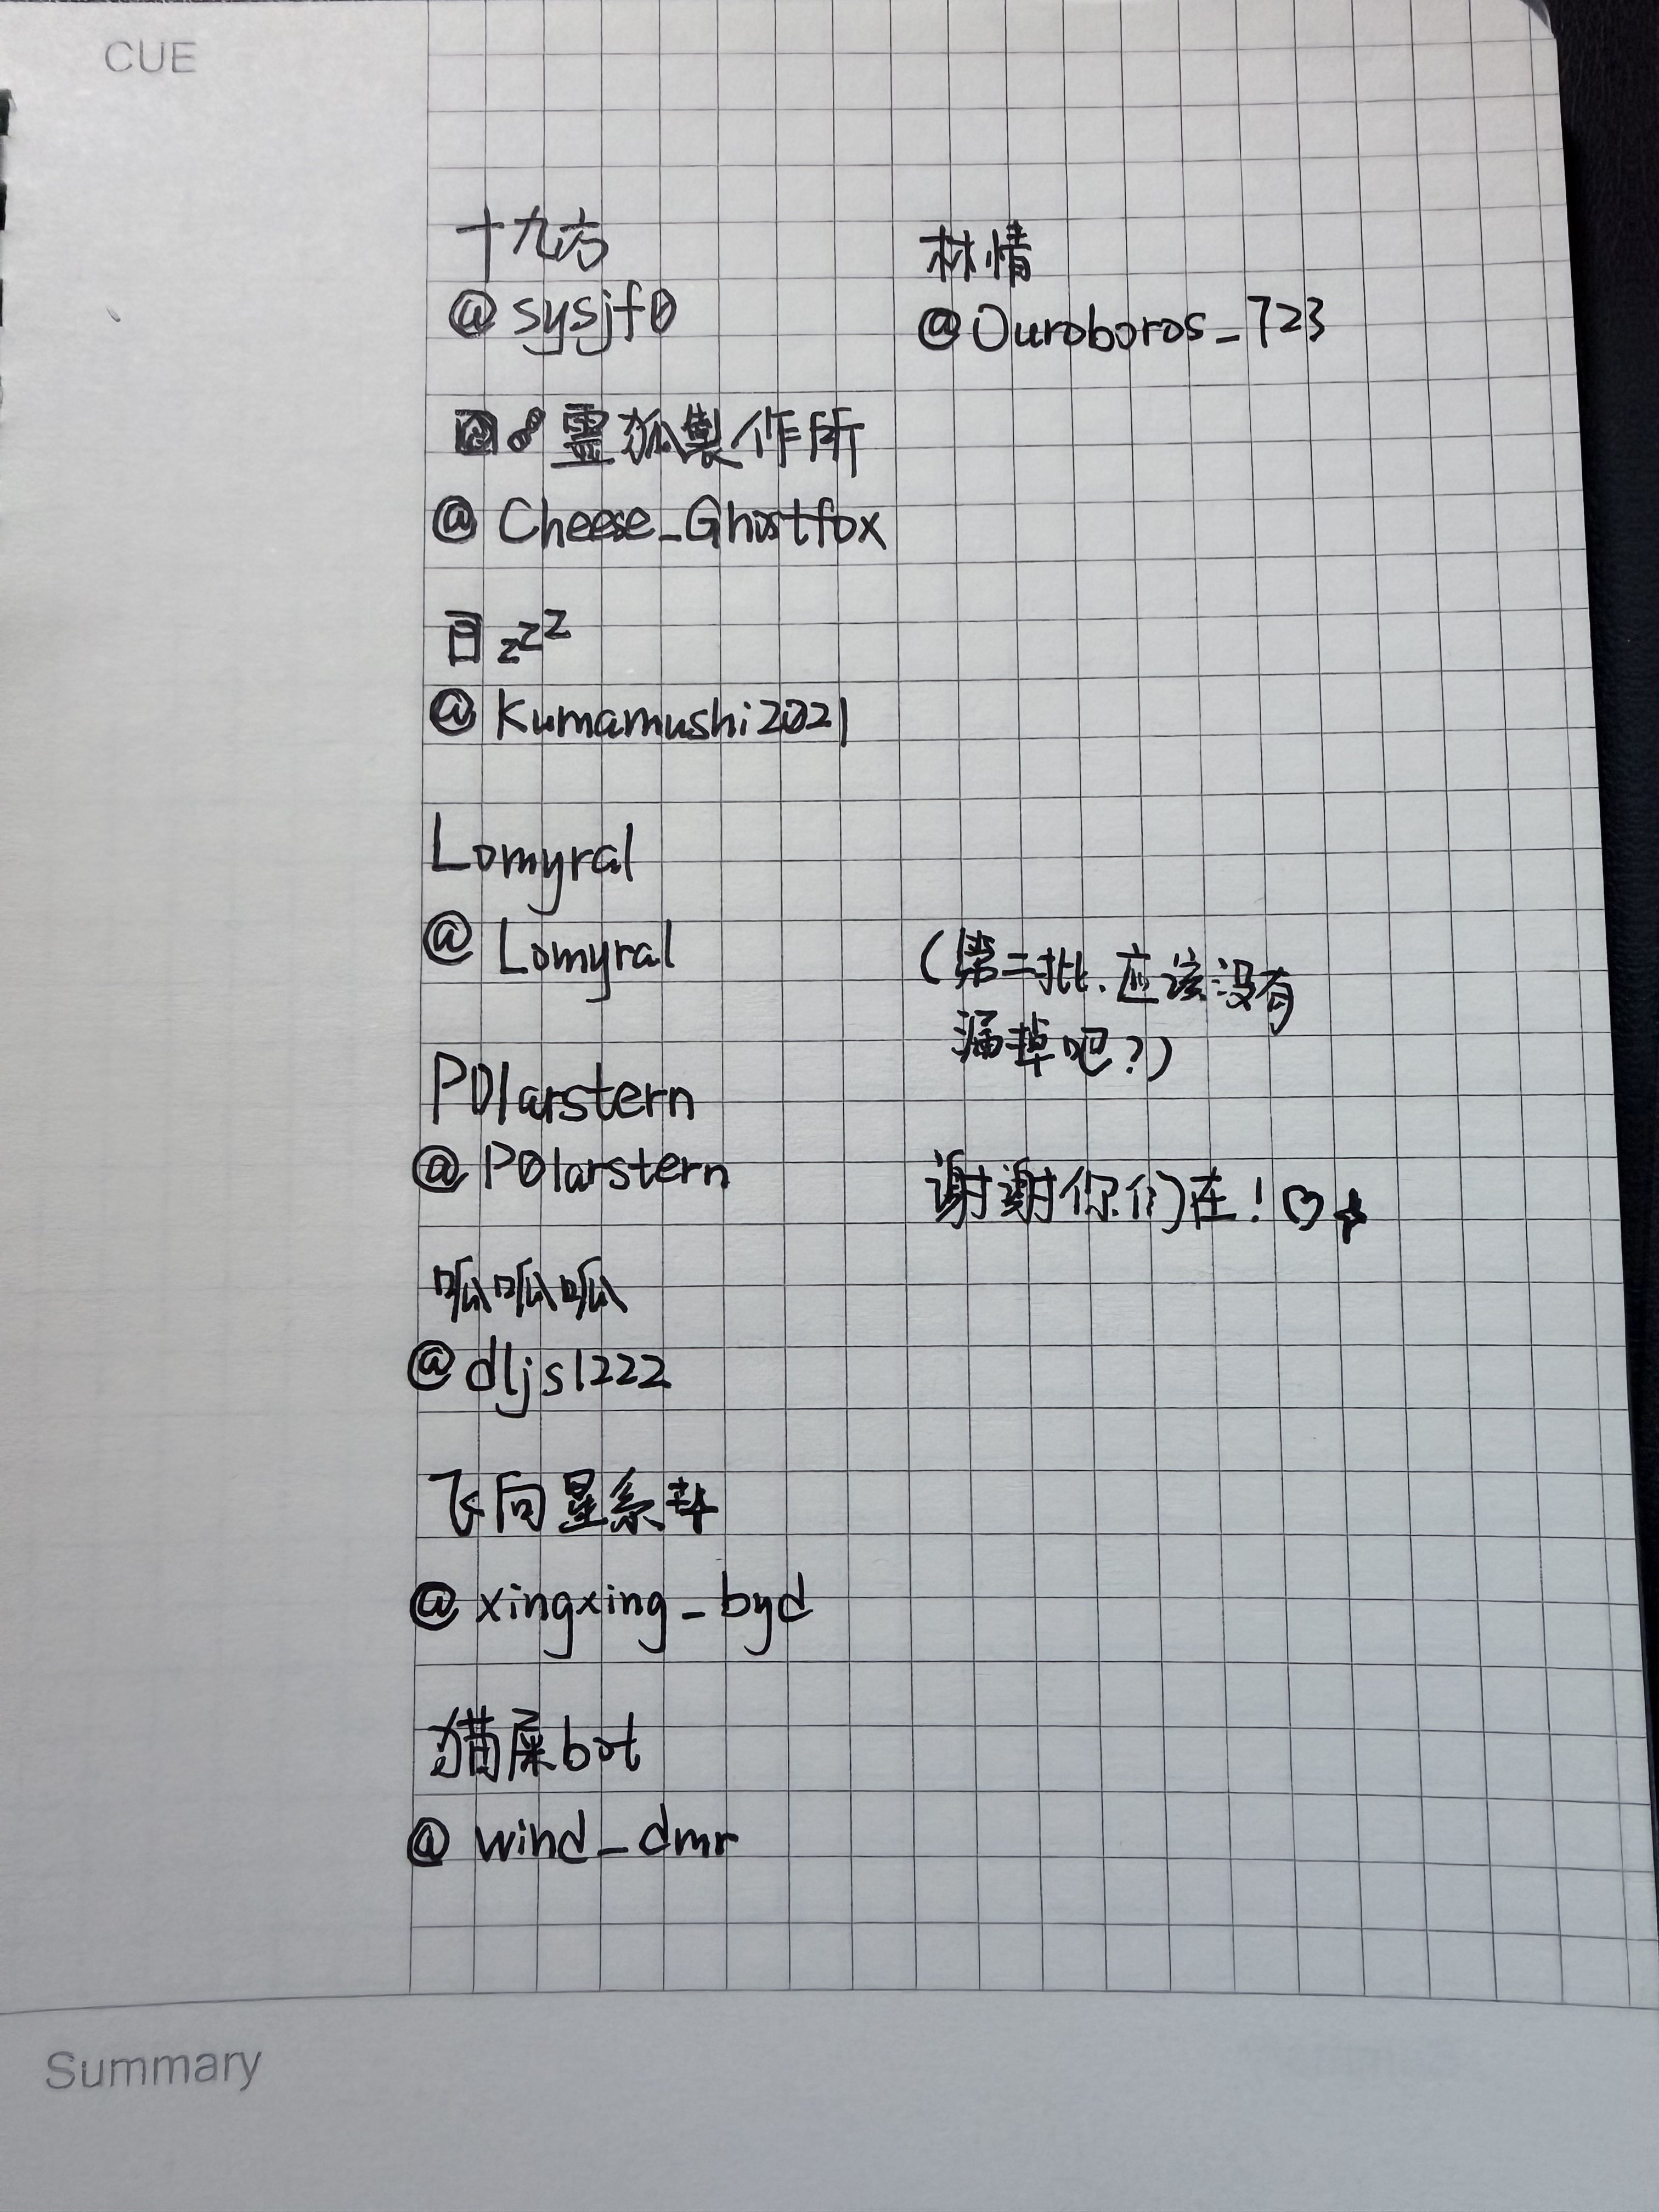 CUE
十九方
@sysjf0
靈狐製作所
@Cheese_Ghostfox
zzz
@Kumamushi2021
Lomyral
@Lomyral
P0larstern
@P0larstern
呱呱呱
@dljs1222
飞向星系
@xingxing_byd
猫屎bot
@wind_dmr
林情
@Ouroboros_723
(第二批,应该没有
漏掉吧?)
谢谢你们在!♡✦
Summary